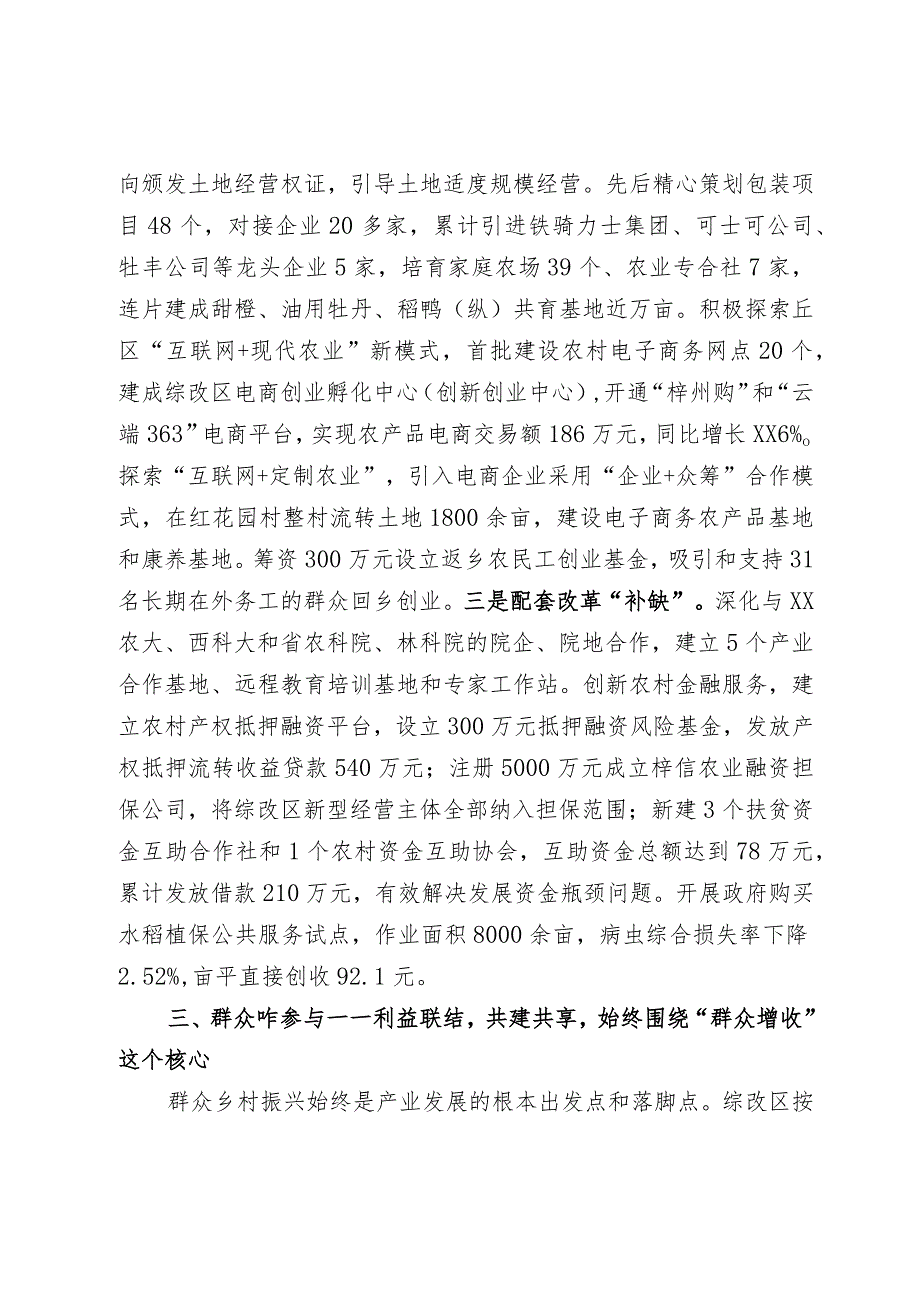 向颁发土地经营权证，引导土地适度规模经营。先后精心策划包装项
目 48 个，对接企业 20 多家，累计引进铁骑力士集团、可士可公司、
牡丰公司等龙头企业 5 家，培育家庭农场 39 个、农业专合社 7 家，
连片建成甜橙、油用牡丹、稻鸭（纵）共育基地近万亩。积极探索丘
区“互联网+现代农业”新模式，首批建设农村电子商务网点 20 个，
建成综改区电商创业孵化中心（创新创业中心）,开通“梓州购”和“云
端 363”电商平台，实现农产品电商交易额 186 万元，同比增长 XX6%。
探索“互联网+定制农业”，引入电商企业采用“企业+众筹”合作模
式，在红花园村整村流转土地 1800 余亩，建设电子商务农产品基地
和康养基地。筹资 300 万元设立返乡农民工创业基金，吸引和支持 31
名长期在外务工的群众回乡创业。三是配套改革“补缺”。深化与 XX
农大、西科大和省农科院、林科院的院企、院地合作，建立 5 个产业
合作基地、远程教育培训基地和专家工作站。创新农村金融服务，建
立农村产权抵押融资平台，设立 300 万元抵押融资风险基金，发放产
权抵押流转收益贷款 540 万元；注册 5000 万元成立梓信农业融资担
保公司，将综改区新型经营主体全部纳入担保范围；新建 3 个扶贫资
金互助合作社和 1 个农村资金互助协会，互助资金总额达到 78 万元，
累计发放借款 210 万元，有效解决发展资金瓶颈问题。开展政府购买
水稻植保公共服务试点，作业面积 8000 余亩，病虫综合损失率下降
2.52%,亩平直接创收 92.1 元。
三、群众咋参与一一利益联结，共建共享，始终围绕“群众增收”
这个核心
群众乡村振兴始终是产业发展的根本出发点和落脚点。综改区按